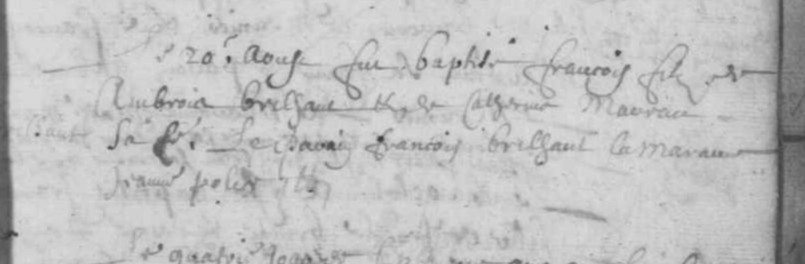 Le 20e Aoust fut baptisé françois filz de
Ambrois brilhaut & de Catherine Maurau
Sa fe. Le Parain francois brilhaut la Maraine
Jeanne
Le quatrie